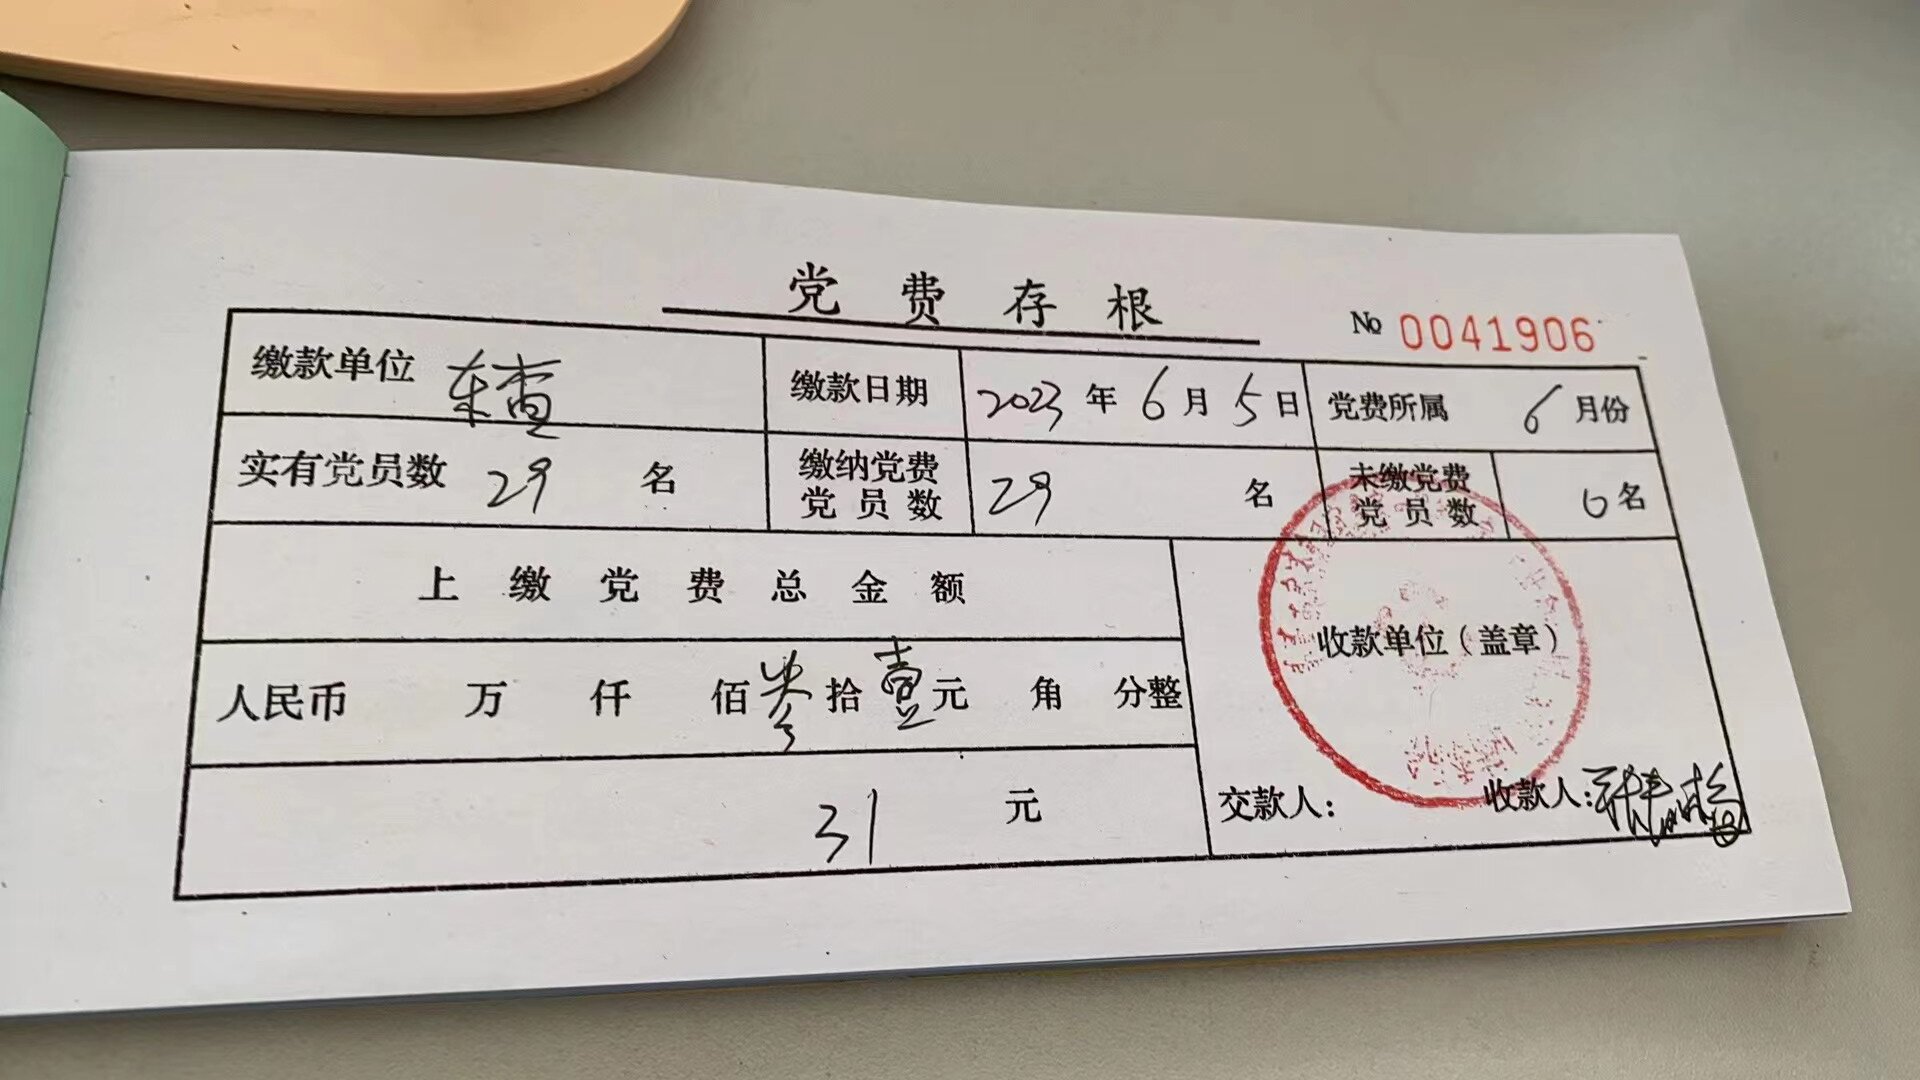 党费存根
No 0041906
缴款单位 东查 缴款日期 2023年6月5日 党费所属 6月份
实有党员数 29 名 缴纳党费党员数 29 名 未缴党费党员数 0名
上缴党费总金额 收款单位(盖章)
人民币 万 仟 佰叁拾壹元 角 分整
31 元 交款人: 收款人: